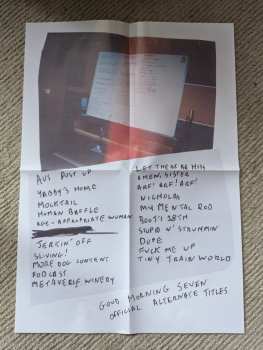 AUS PUST UP
YABBY'S HOME
MOCKTAIL
HUMAN BAFFLE
AGE-APPROPRIATE WOMAN
JERKIN' OFF
SLIVING!
MORE DOG CONTENT
PODCAST
METAVERSE WINERY
LET THERE BE HIM
AMEN, SISTER
ARF! ARF! ARF!
NICHOLAS
MY MENTAL ROD
BOOTI 28TH
STUPID N' STRUMMIN
DUPE
FUCK ME UP
TINY TRAIN WORLD
GOOD MORNING SEVEN
OFFICIAL ALTERNATE TITLES